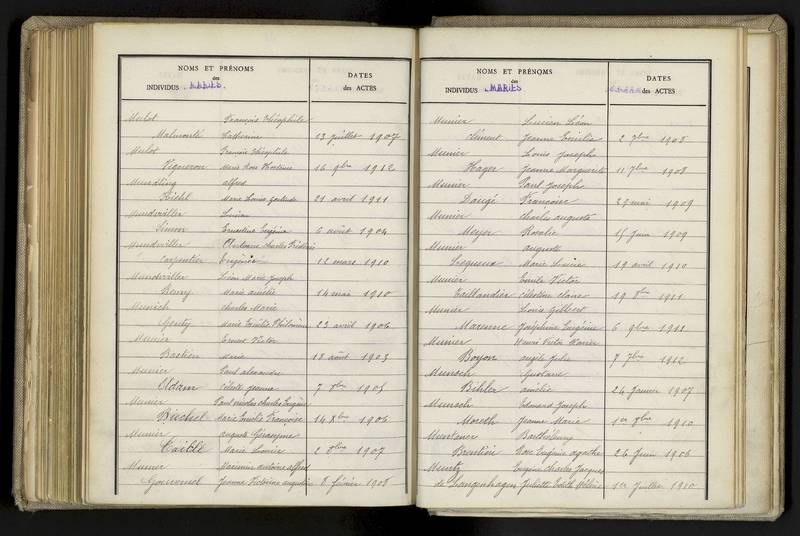 NOMS ET PRÉNOMS
des
INDIVIDUS MARIÉS.
DATES
des ACTES
Mulot François Théophile
Malnoité Catherine 13 juillet 1907
Mulot Francois Théophile
Vigneron Marie Rose Hortense 16 9bre 1912
Mundting alfred
Kiehl Marie Louise Gertrude 21 avril 1911
Mundwiller Lucien
Simon Ernestine Eugénie 6 août 1904
Mundwiller Charles Frédéric
Carpentier Eugénie 12 mars 1910
Mundwiller Léon Marie Joseph
Remy Marie amélie 14 mai 1910
Munich Charles Marie
Genty Marie Emélie Philomène 23 avril 1906
Munier Ernest Victor
Bastien Marie 18 août 1903
Munier Paul alexandre
Adam Céleste Jeanne 7 8bre 1905
Munier Paul Nicolas Charles Eugène
Büchel Marie Emélie Françoise 14 Xbre 1906
Munier auguste Germyme
Caiblé Marie Léonie 2 8bre 1907
Munier Maximin antoine alfred
Gouvernel Jeanne Victorine augustine 8 février 1908
NOMS ET PRÉNOMS
des
INDIVIDUS MARIÉS
DATES
des ACTES
Munier Lucien Léon
Clément Jeanne Emilie 2 7bre 1908
Munier Louis Joseph
Hager Jeanne Marguerite 11 7bre 1908
Munier Paul Joseph
Daugé Françoise 29 mai 1909
Munier Charles auguste
Meyer Rosalie 15 Juin 1909
Munier auguste
Lesqueux Marie Louise 19 avril 1910
Munier Emile Victor
Taillandier Clarisse 19 8bre 1911
Munier Louis Gilbert
Maxenne Joséphine Eugénie 6 9bre 1911
Munier Henri Victor Xavier
Boyon Angèle Julie 7 7bre 1912
Munsch Gustave
Bihler amélie 24 Janvier 1907
Munsch Edouard Joseph
Moreth Jeanne Marie 1er 8bre 1910
Muntaner Barthélemy
Brentini Rose Eugénie agathe 26 Juin 1906
Muntz Eugène Charles Jacques
de Langenhagen Juliette Edith Hélène 1er Juillet 1910